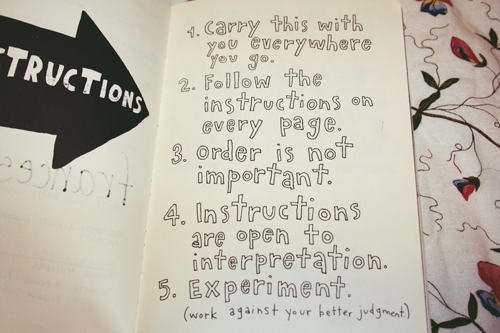 STRUCTIONS
1. Carry this with
you everywhere
you go.
2. Follow the
instructions on
every page.
3. Order is not
important.
4. Instructions
are open to
interpretation.
5. Experiment.
(work against your better judgment.)
frances